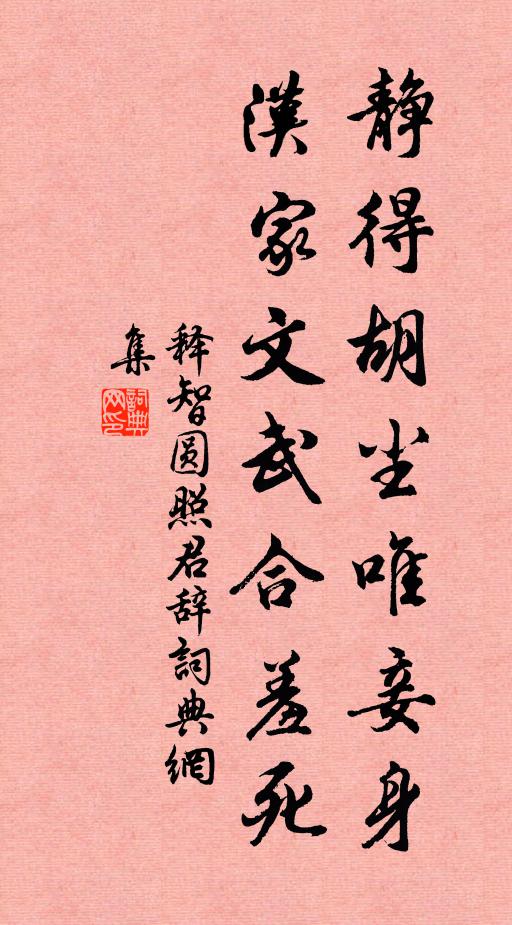 静得胡尘唯妾身
漢家文武合羞死
释智圆照君辞詞典網
集
詞典
网印